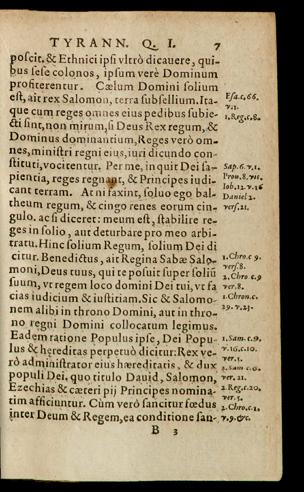 TYRANN. Q. I. 7
poscit. & Ethnici ipsi vltrò dicauere, qui-
bus sese colonos, ipsum verè Dominum
profiterentur. Cælum Domini solium
est, ait rex Salomon, terra subsellium. Ita-
que cum reges omnes eius pedibus subie-
cti sint, non mirum, si Deus Rex regum, &
Dominus dominantium, Reges verò om-
nes, ministri regni eius, iuri dicundo con-
stituti, vocitentur. Per me, inquit Dei sa-
pientia, reges regnant, & Principes iudi-
cant terram. At ni faxint, soluo ego bal-
theum regum, & cingo renes eorum cin-
gulo. ac si diceret: meum est, stabilire re-
ges in solio, aut deturbare pro meo arbi-
tratu. Hinc solium Regum, solium Dei di
citur. Benedictus, ait Regina Sabæ Salo-
moni, Deus tuus, qui te posuit super soliū
suum, vt regem loco domini Dei tui, vt fa
cias iudicium & iustitiam. Sic & Salomo-
nem alibi in throno Domini, aut in thro-
no regni Domini collocatum legimus.
Eadem ratione Populus ipse, Dei Popu-
lus & hæreditas perpetuò dicitur: Rex ve-
rò administrator eius hæreditatis, & dux
populi Dei. quo titulo Dauid, Salomon,
Ezechias & cæteri pij Principes nomina-
tim afficiuntur. Cùm verò sancitur fœdus
inter Deum & Regem, ea conditione san-
B 3
Esa. c. 66.
v. 1.
1. Reg. c. 8.
Sap. 6. v. 1.
Prou. 8. v. 15.
Iob. 12. v. 16
Daniel 2.
vers. 21.
1. Chro. c 9.
vers. 8.
2. Chro. c. 9
ver. 8.
1. Chron. c.
29. v. 23.
1. Sam. c. 9.
v. 16. c. 10.
ver. 1.
2. Sam. c. 6.
ver. 21.
2. Reg. c. 20.
ver. 5.
2. Chro. c. 1.
v. 9. &c.